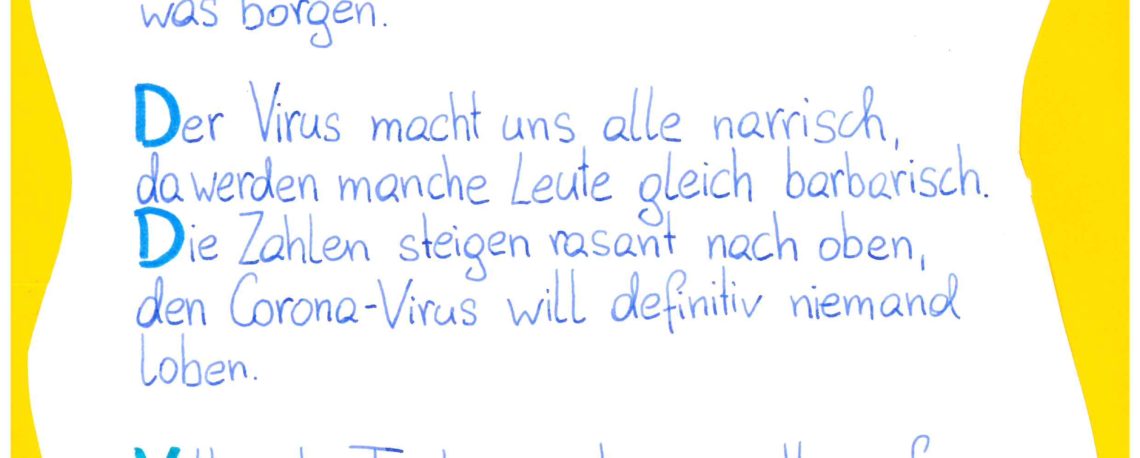 was borgen.
Der Virus macht uns alle narrisch,
da werden manche Leute gleich barbarisch.
Die Zahlen steigen rasant nach oben,
den Corona-Virus will definitiv niemand
loben.